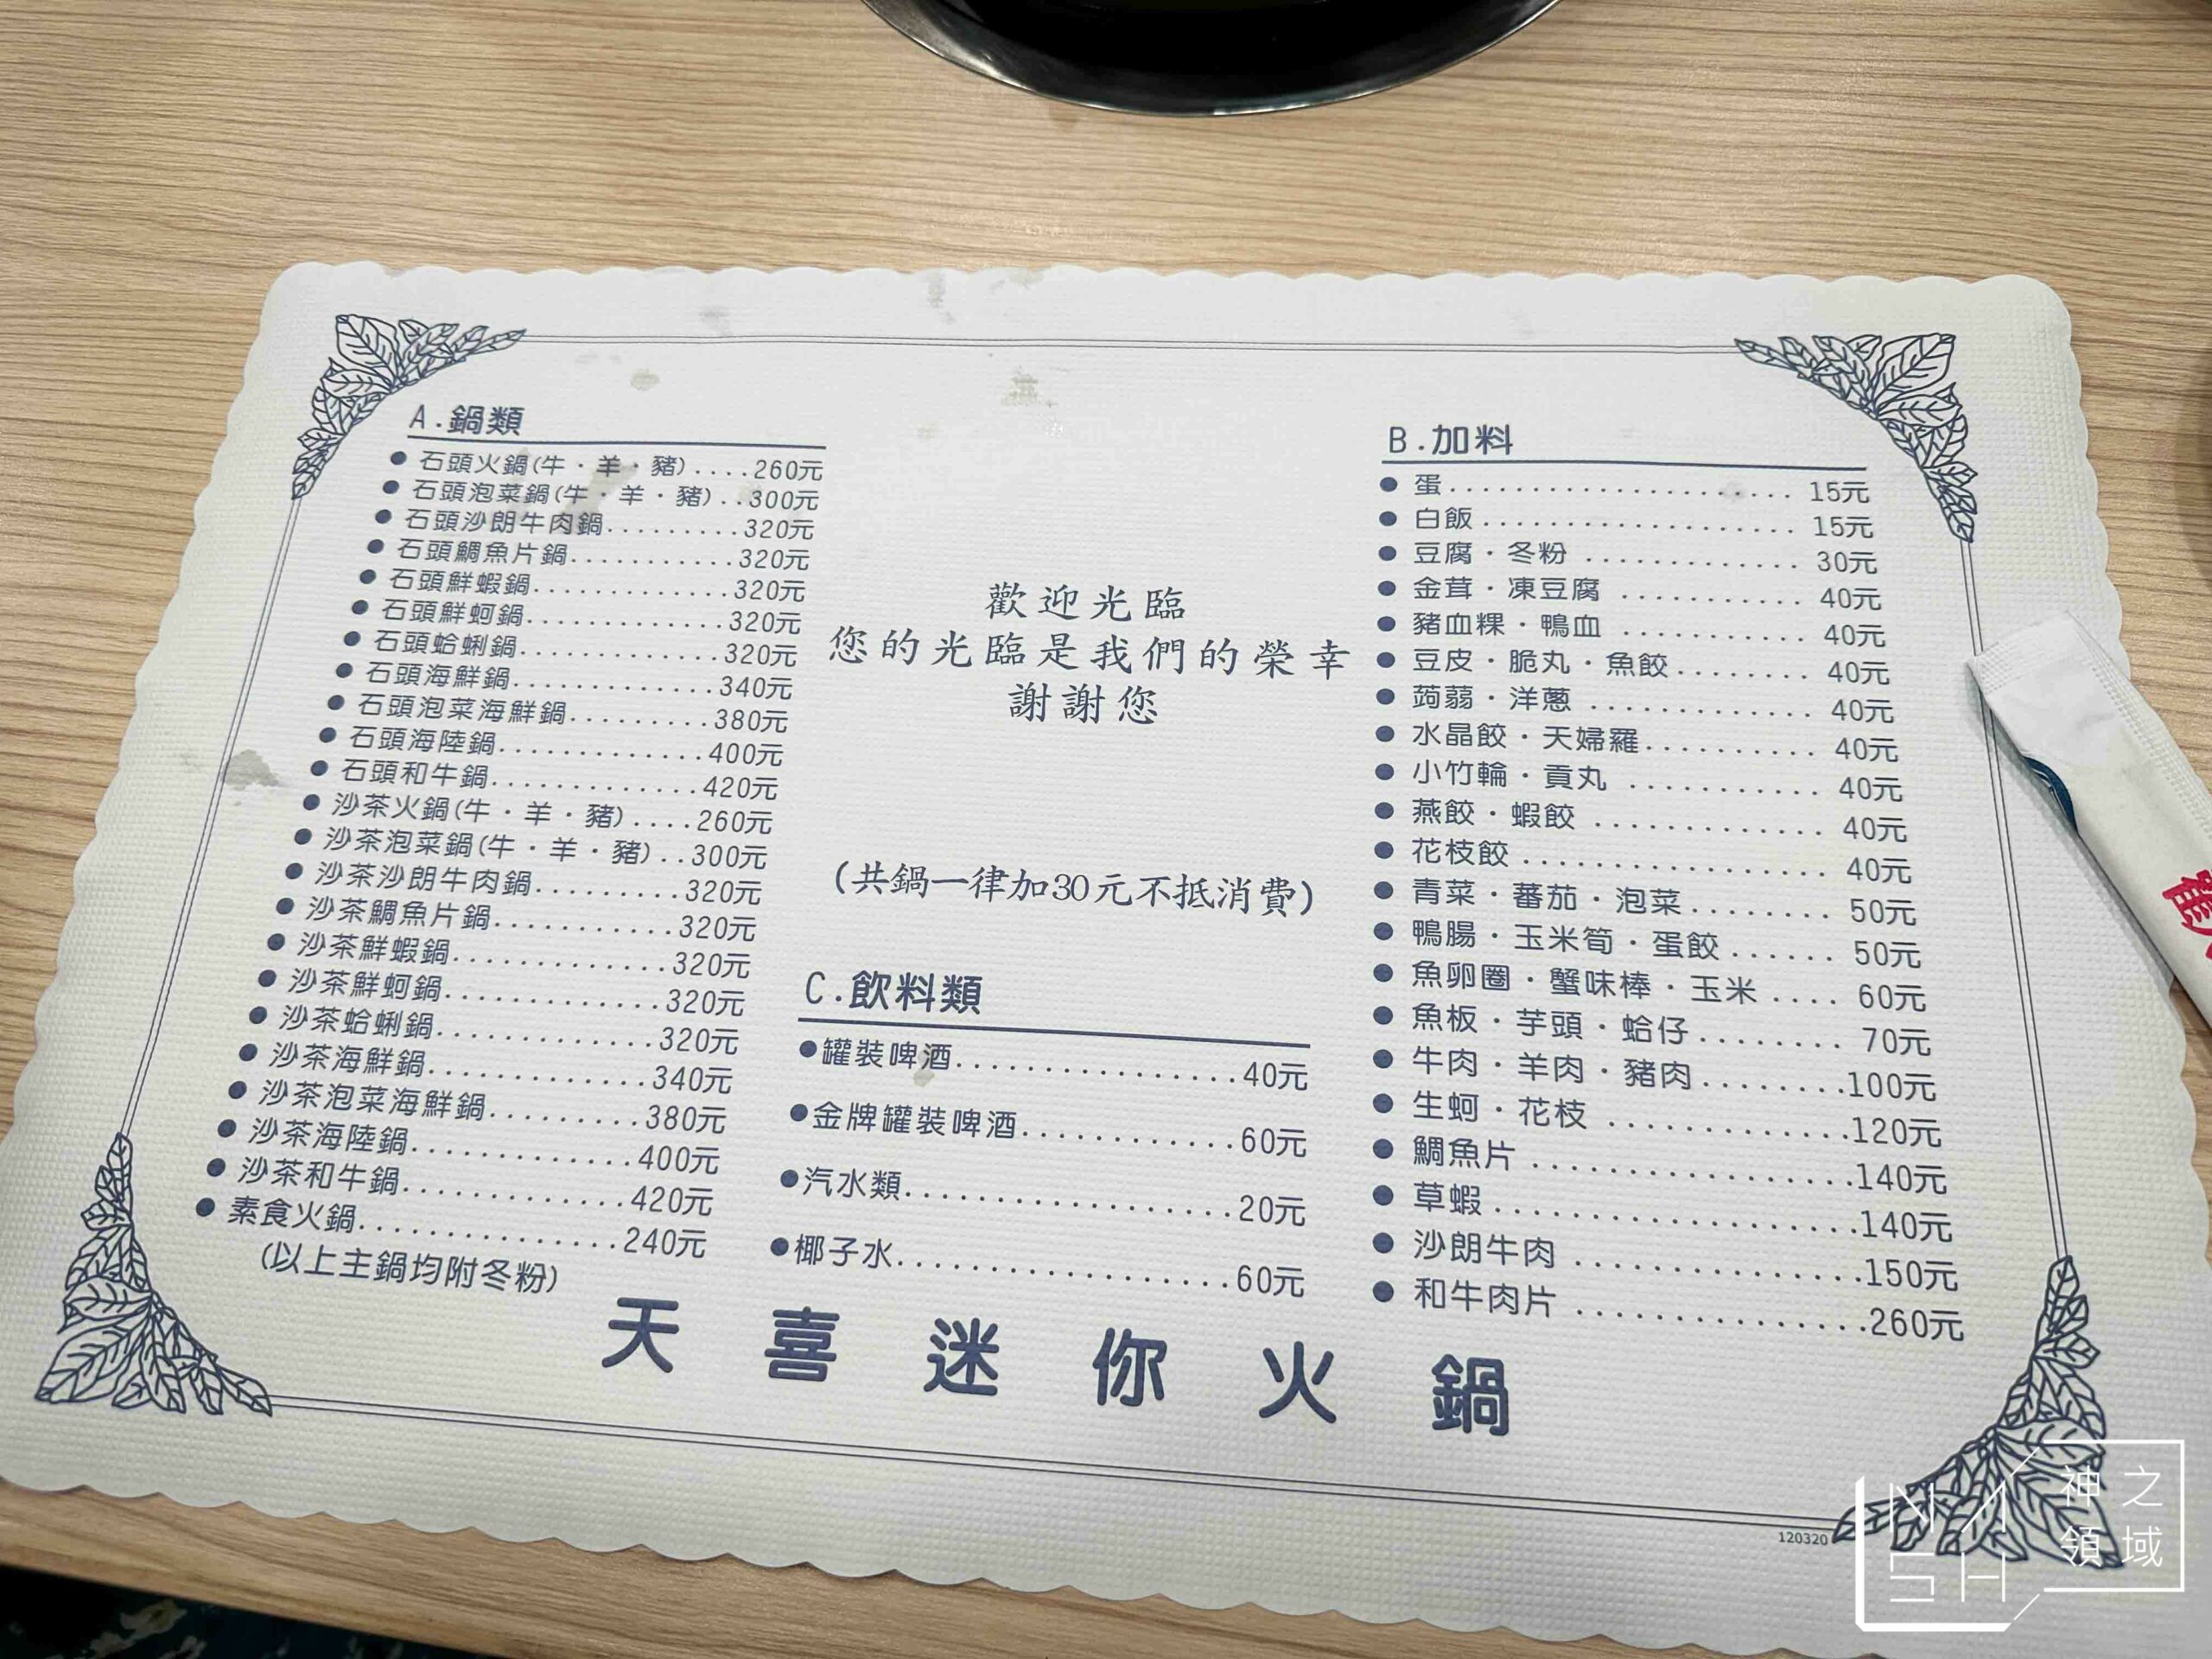 A.鍋類
石頭火鍋(牛・羊・豬)....260元
石頭泡菜鍋(牛・羊・豬)..300元
石頭沙朗牛肉鍋.........320元
石頭鯛魚片鍋...........320元
石頭鮮蝦鍋.............320元
石頭鮮蚵鍋.............320元
石頭蛤蜊鍋.............320元
石頭海鮮鍋.............340元
石頭泡菜海鮮鍋.........380元
石頭海陸鍋.............400元
石頭和牛鍋.............420元
沙茶火鍋(牛・羊・豬)....260元
沙茶泡菜鍋(牛・羊・豬)..300元
沙茶沙朗牛肉鍋.........320元
沙茶鯛魚片鍋...........320元
沙茶鮮蝦鍋.............320元
沙茶鮮蚵鍋.............320元
沙茶蛤蜊鍋.............320元
沙茶海鮮鍋.............340元
沙茶泡菜海鮮鍋.........380元
沙茶海陸鍋.............400元
沙茶和牛鍋.............420元
素食火鍋...............240元
(以上主鍋均附冬粉)
歡迎光臨
您的光臨是我們的榮幸
謝謝您
(共鍋一律加30元不抵消費)
C.飲料類
罐裝啤酒.................40元
金牌罐裝啤酒.............60元
汽水類...................20元
椰子水...................60元
B.加料
蛋..................... 15元
白飯................... 15元
豆腐・冬粉 ............. 30元
金茸・凍豆腐 ........... 40元
豬血粿・鴨血 ........... 40元
豆皮・脆丸・魚餃........ 40元
蒟蒻・洋蔥 ............. 40元
水晶餃・天婦羅.......... 40元
小竹輪・貢丸 ........... 40元
燕餃・蝦餃 ............. 40元
花枝餃 ................. 40元
青菜・蕃茄・泡菜........ 50元
鴨腸・玉米筍・蛋餃...... 50元
魚卵圈・蟹味棒・玉米 .... 60元
魚板・芋頭・蛤仔........ 70元
牛肉・羊肉・豬肉........100元
生蚵・花枝 .............120元
鯛魚片 .................140元
草蝦 ...................140元
沙朗牛肉 ...............150元
和牛肉片 ...............260元
天喜迷你火鍋
120320
NASH
神之
領域